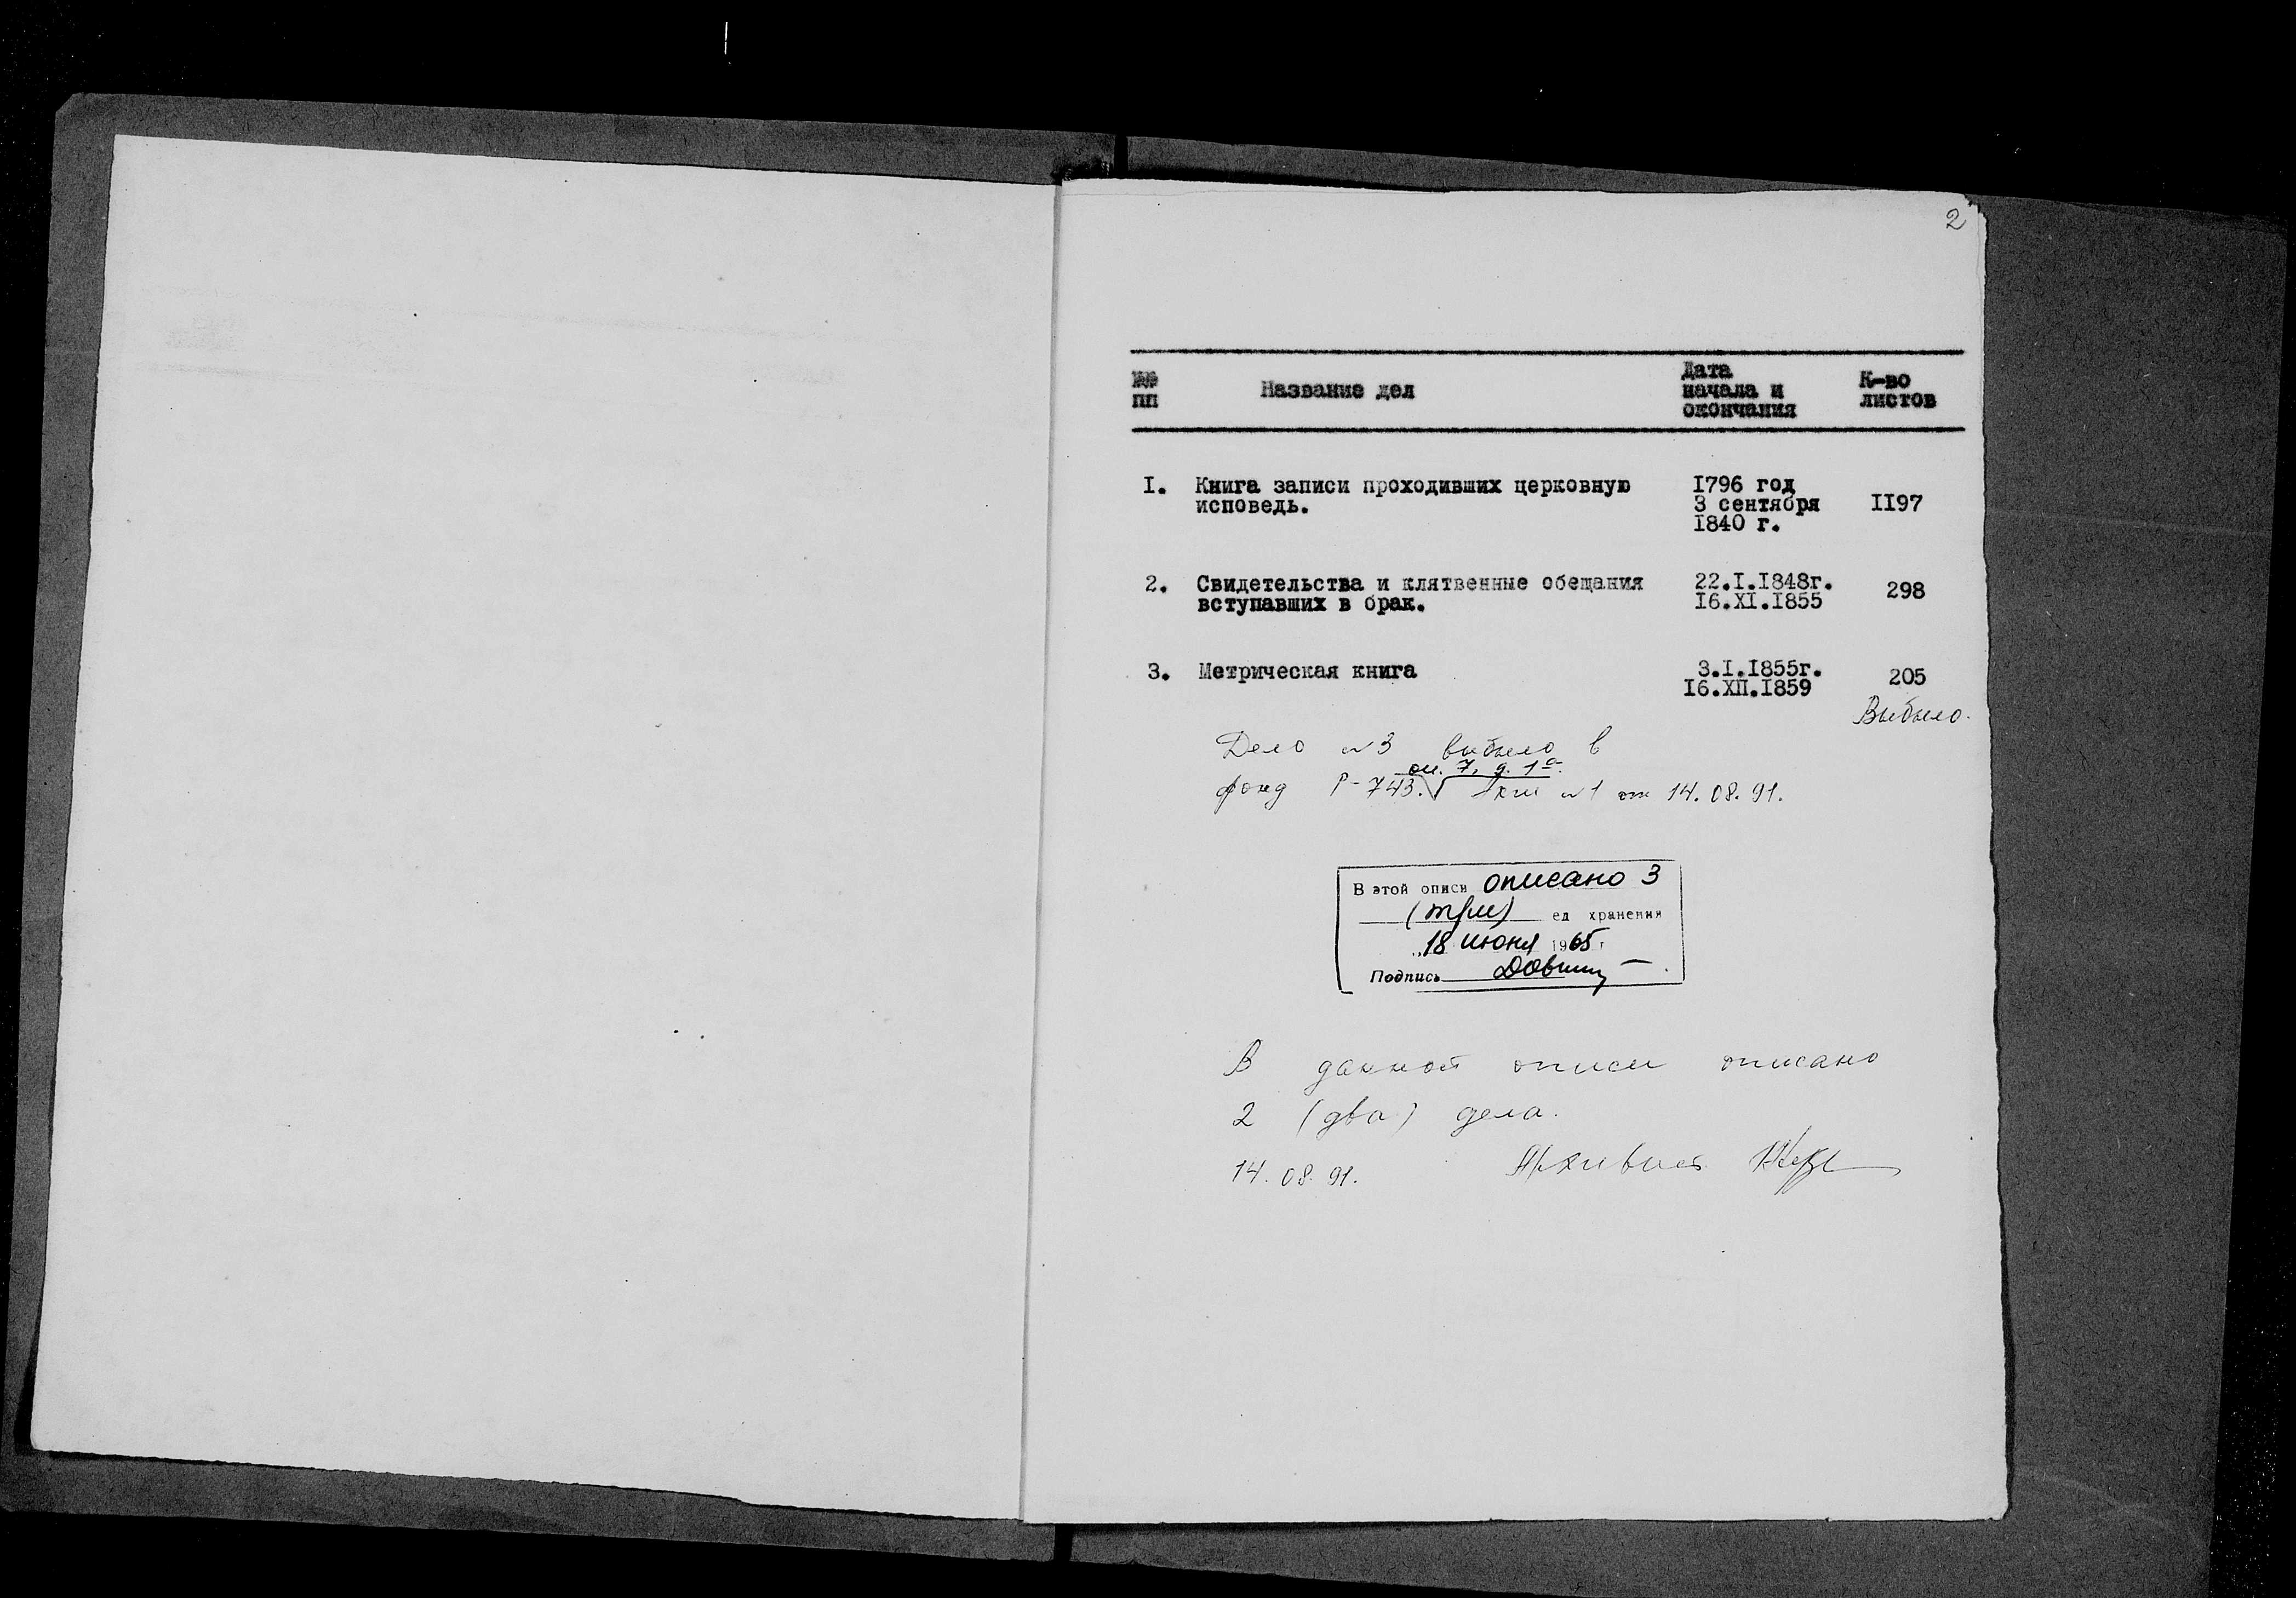 2
№№ пп Название дел Дата начала и окончания К-во листов
I. Книга записи проходивших церковную 1796 год
исповедь. 3 сентября II97
1840 г.
2. Свидетельства и клятвенные обещания 22.I.1848г. 298
вступавших в брак. 16.XI.1855
3. Метрическая книга 3.I.1855г. 205
16.XII.1859
Выбыло.
Дело №3 выбыло в
оп. 7, д. 1а.
фонд Р-743. Акт №1 от 14.08.91.
В этой описи описано 3
(три) ед хранения
"18 июня 1965 г
Подпись
В данной описи описано
2 (два) дела.
14.08.91. Архивист